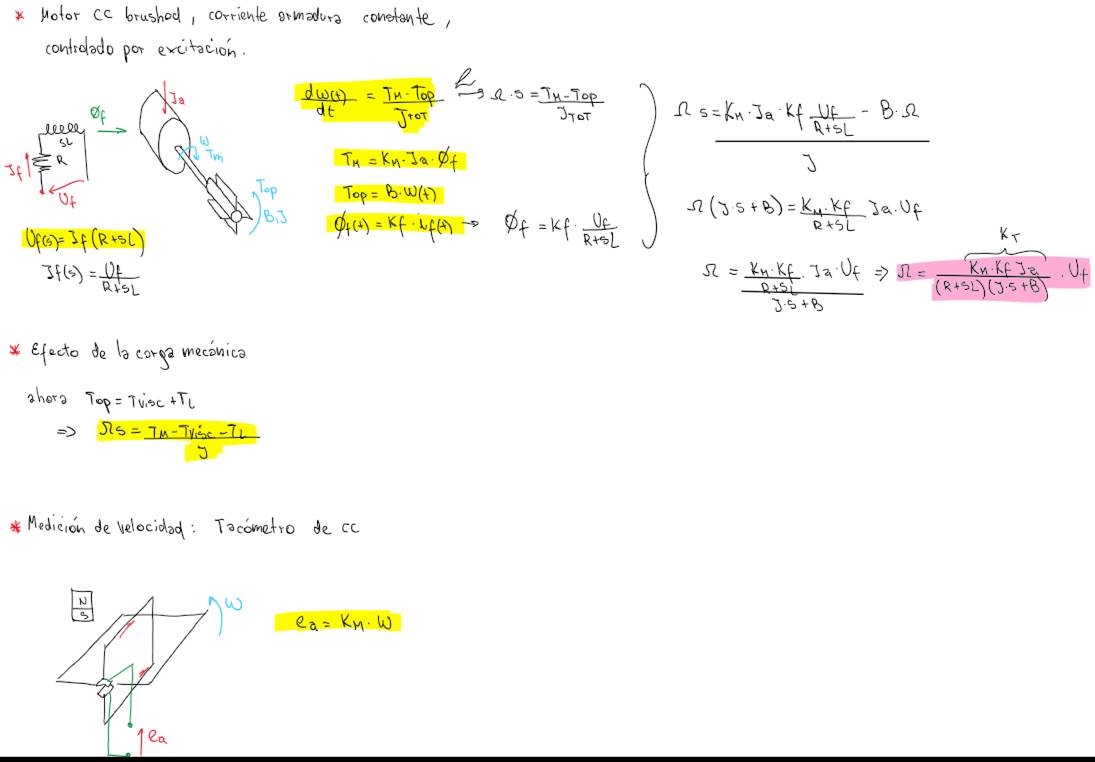 * Motor cc brushed, corriente armadura constante,
controlado por excitación.
Øf
Ia
sL
R
If
Uf
w
Tm
Top
B,J
Uf(s) = If (R+sL)
If(s) = Uf / R+sL
dw(t)/dt = TM - Top / JTOT → Ω·s = TM - Top / JTOT
TM = KM·Ia·Øf
Top = B·w(t)
Øf(t) = Kf·if(t) → Øf = Kf · Uf / R+sL
Ω s = KM·Ia·Kf Uf / R+sL - B·Ω / J
Ω (J·s + B) = KM·Kf / R+sL Ia·Uf
KT
Ω = KM·Kf / R+sL · Ia·Uf / J·s+B ⇒ Ω = KM·Kf Ia / (R+sL)(J·s+B) · Uf
* Efecto de la carga mecánica
ahora Top = Tvisc + TL
⇒ Ωs = TM - Tvisc - TL / J
* Medición de velocidad: Tacómetro de cc
N
S
w
ea = KM·w
ea